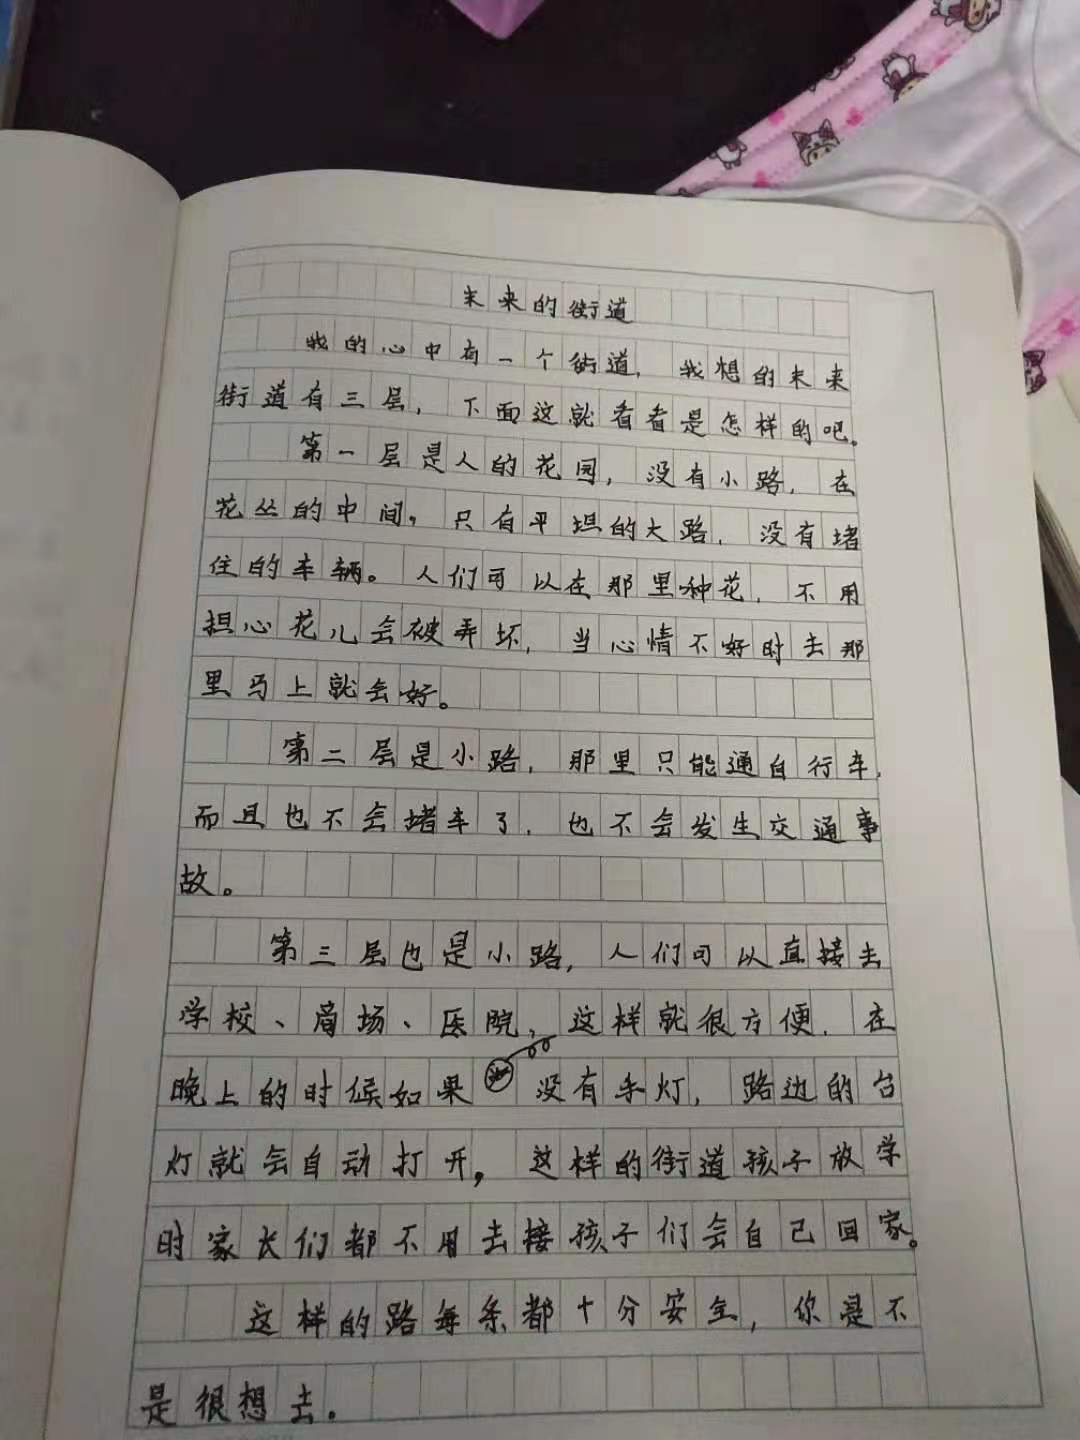 未来的街道
我的心中有一个街道，我想的未来
街道有三层，下面这就看看是怎样的吧。
第一层是人的花园，没有小路，在
花丛的中间，只有平坦的大路，没有堵
住的车辆。人们可以在那里种花，不用
担心花儿会被弄坏，当心情不好时去那
里马上就会好。
第二层是小路，那里只能通自行车，
而且也不会堵车了，也不会发生交通事
故。
第三层也是小路，人们可以直接去
学校、商场、医院，这样就很方便，在
晚上的时候如果没有手灯，路边的台
灯就会自动打开，这样的街道孩子放学
时家长们都不用去接孩子们会自己回家。
这样的路每条都十分安全，你是不
是很想去。